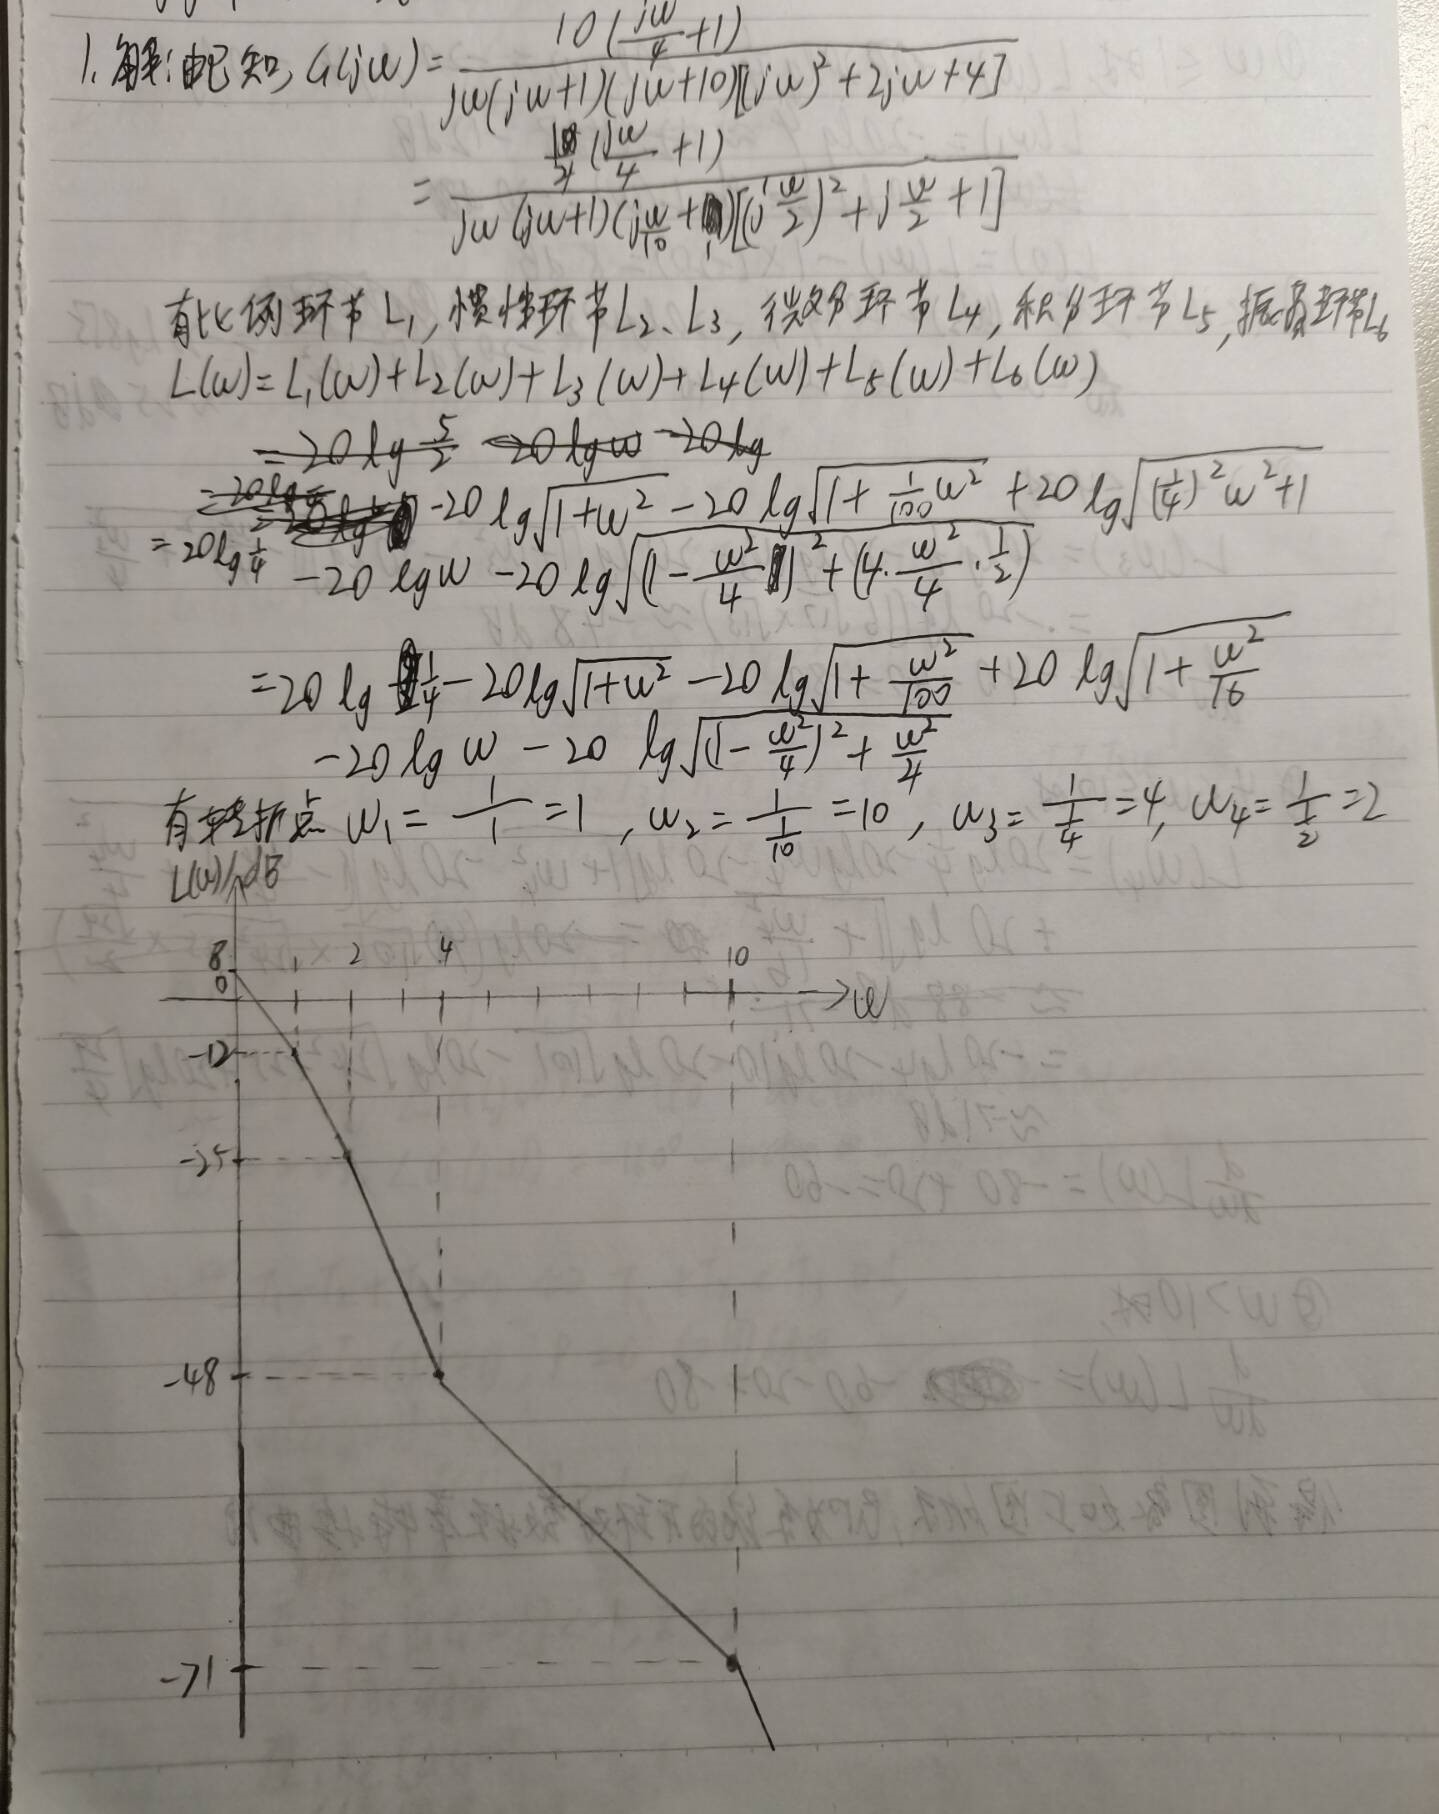 1. 解:由已知, G(jω) = 10(jω/4 + 1) / jω(jω+1)(jω+10)[(jω)² + 2jω + 4]
= 1/4 (jω/4 + 1) / jω(jω+1)(jω/10 + 1)[(jω/2)² + jω/2 + 1]
有比例环节L₁, 惯性环节L₂、L₃, 微分环节L₄, 积分环节L₅, 振荡环节L₆
L(ω) = L₁(ω) + L₂(ω) + L₃(ω) + L₄(ω) + L₅(ω) + L₆(ω)
= 20 lg 5/2 - 20 lg ω - 20 lg
= 20 lg 1/4 - 20 lg √(1+ω²) - 20 lg √(1 + 1/100 ω²) + 20 lg √((1/4)²ω² + 1)
- 20 lg ω - 20 lg √((1 - ω²/4)² + (4·ω²/4·1/2))
= 20 lg 1/4 - 20 lg √(1+ω²) - 20 lg √(1 + ω²/100) + 20 lg √(1 + ω²/16)
- 20 lg ω - 20 lg √((1 - ω²/4)² + ω²/4)
有转折点 ω₁ = 1/1 = 1, ω₂ = 1/(1/10) = 10, ω₃ = 1/(1/4) = 4, ω₄ = 1/(1/2) = 2
L(ω)/dB
8 1 2 4 10
0 ω
-12
-25
-48
-71